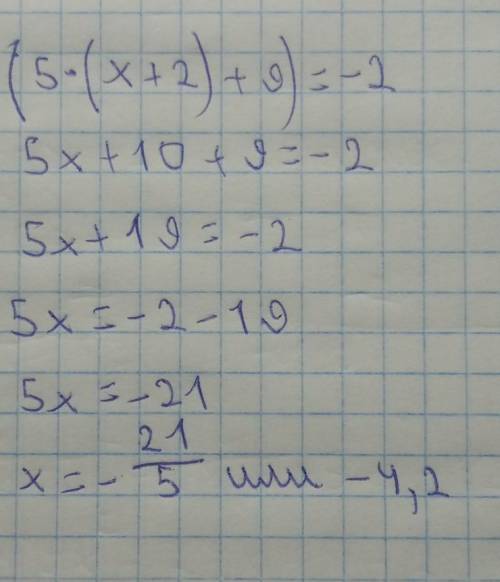 (5·(x+2)+9)=-2
5x+10+9=-2
5x+19=-2
5x=-2-19
5x=-21
x=-21/5 или -4,2